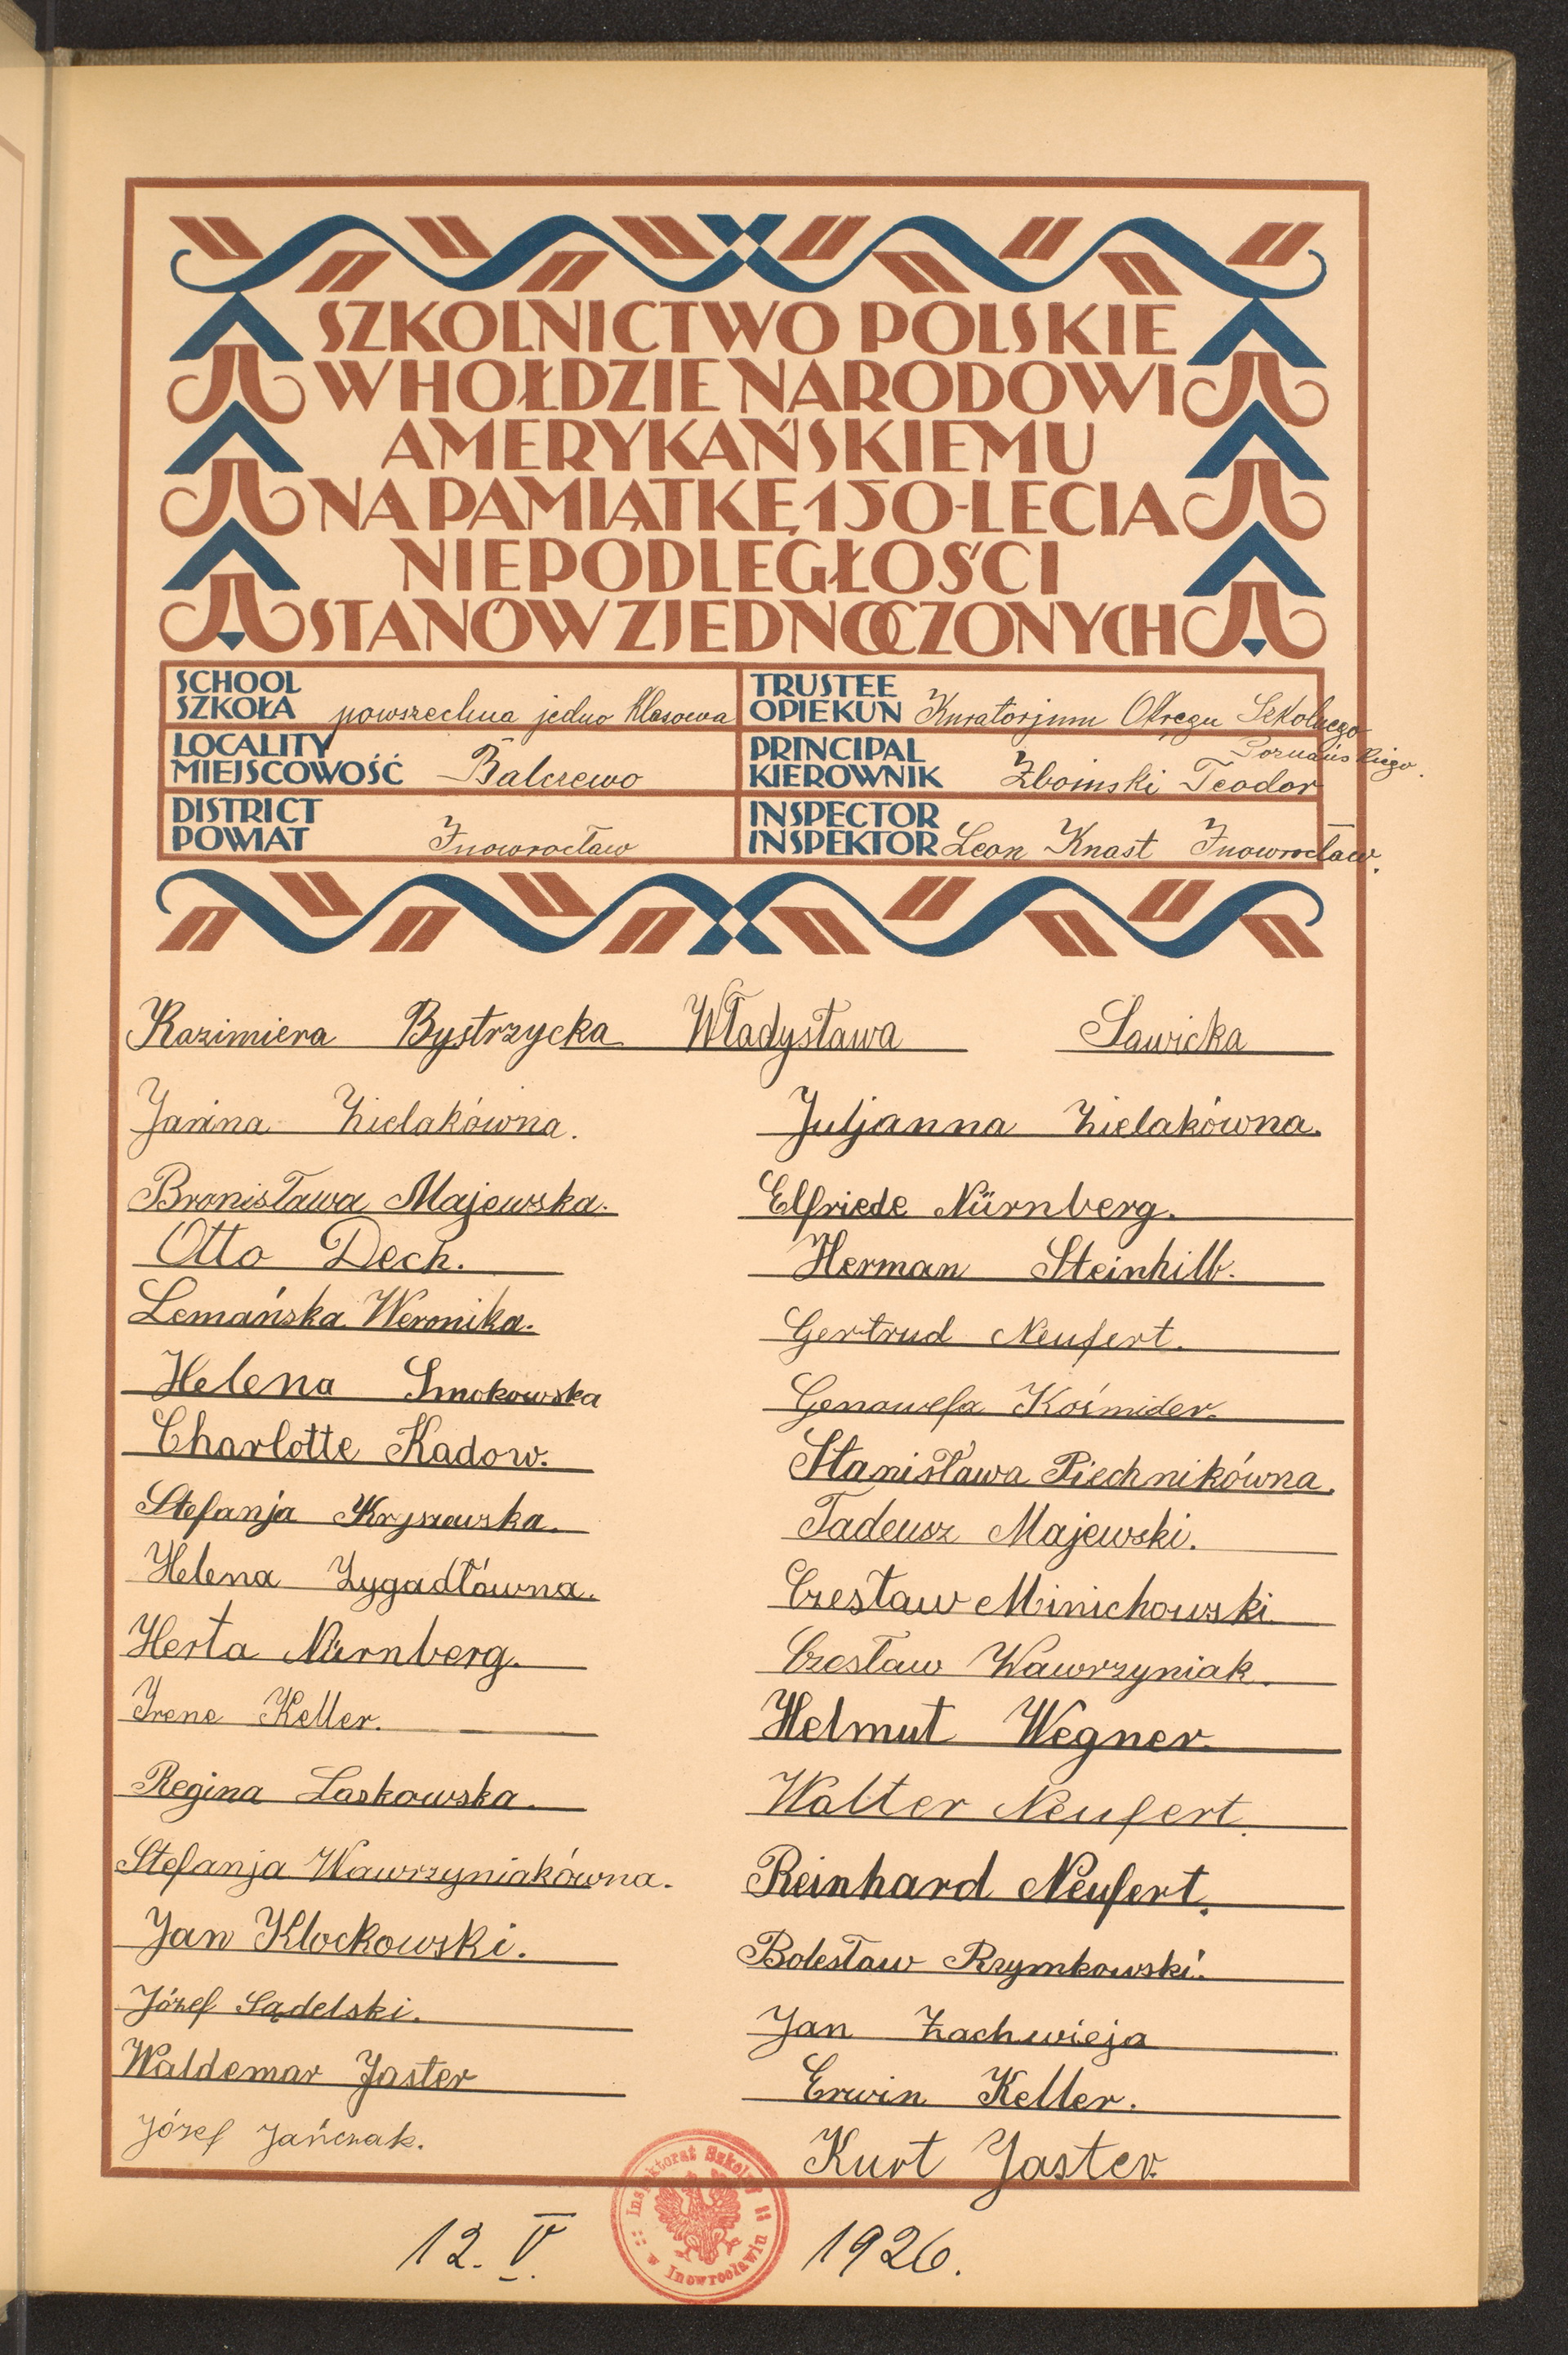 SZKOLNICTWO POLSKIE
W HOŁDZIE NARODOWI
AMERYKAŃSKIEMU
NA PAMIĄTKĘ 150-LECIA
NIEPODLEGŁOŚCI
STANÓW ZJEDNOCZONYCH
SCHOOL
SZKOŁA powszechna jedno klasowa
TRUSTEE
OPIEKUN Kuratorjum Okręgu Szkolnego
Poznańskiego.
LOCALITY
MIEJSCOWOŚĆ Balczewo
PRINCIPAL
KIEROWNIK Zboinski Teodor
DISTRICT
POWIAT Inowrocław
INSPECTOR
INSPEKTOR Leon Knast Inowrocław.
Kazimiera Bystrzycka Władysława Sawicka
Janina Zielakówna. Juljanna Zielakówna.
Bronisława Majewska. Elfriede Nürnberg.
Otto Dech. Herman Steinhilb.
Lemańska Weronika. Gertrud Neufert.
Helena Smokowska Genowefa Kośmider.
Charlotte Kadow. Stanisława Piechnikówna.
Stefanja Kryszewska. Tadeusz Majewski.
Helena Zygadłówna. Czesław Minichowski.
Herta Nürnberg. Czesław Wawrzyniak.
Irene Keller. Helmut Wegner.
Regina Laskowska. Walter Neufert.
Stefanja Wawrzyniakówna. Reinhard Neufert.
Jan Klockowski. Bolesław Rzymkowski.
Józef Sądelski. Jan Zachwieja
Waldemar Jaster Erwin Keller.
Józef Jańczak. Kurt Jaster.
Inspektorat Szkolny II w Inowrocławiu
12. V. 1926.